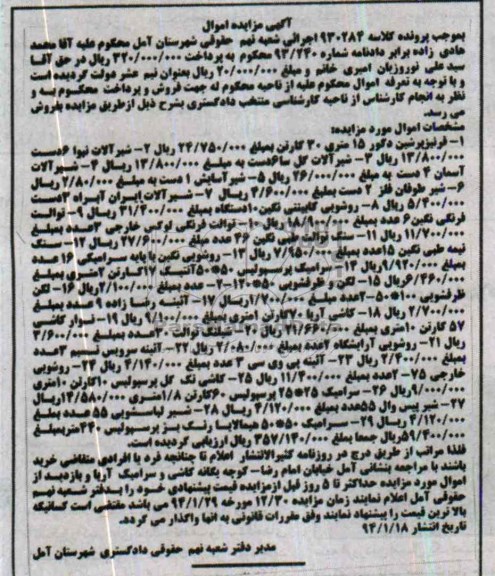 آگهی مزایده اموال
بموجب پرونده کلاسه ۹۳۰۲۸۴ اجرائی شعبه نهم حقوقی شهرستان آمل محکوم علیه آقا محمد
هادی زاده برابر دادنامه شماره ۹۳/۲۴۰ محکوم به پرداخت ۳۲۰/۰۰۰/۰۰۰ ریال در حق آقا
سید علی نوروزیان امیری خانم و مبلغ ۲۰/۰۰۰/۰۰۰ ریال بعنوان نیم عشر دولت گردیده است
و با توجه به تعرفه اموال محکوم علیه از ناحیه محکوم له جهت فروش و پرداخت محکوم به و
نظر به انجام کارشناس از ناحیه کارشناسی منتخب دادگستری بشرح ذیل ازطریق مزایده بفروش
می رسد.
مشخصات اموال مورد مزایده:
۱- قرنیزپرشین دکور ۱۵ متری ۳۰ کارتن بمبلغ ۲۴/۷۵۰/۰۰۰ ریال ۲- شیرآلات نیوا ۶دست
۱۳/۸۰۰/۰۰۰ ریال ۳- شیرآلات گل سا۶دست به مبلغ ۱۳/۸۰۰/۰۰۰ ریال ۴- شیرآلات
آسمان ۴ دست به مبلغ ۲۶/۰۰۰/۰۰۰ ریال ۵- شیرآسایش ۱ دست به مبلغ ۲/۸۰۰/۰۰۰ ریال
۶- شیر طوفان فلز ۲ دست بمبلغ ۴/۶۰۰/۰۰۰ ریال ۷- شیرآلات ایران آبراه ۲دست
۵/۴۰۰/۰۰۰ ریال ۸- روشویی کابینتی نگین ۱۰دستگاه بمبلغ ۳۱/۴۰۰/۰۰۰ ریال ۹- توالت
فرنگی نگین ۶ عدد بمبلغ ۱۸/۹۰۰/۰۰۰ ریال ۱۰- توالت فرنگی لوکس خارجی ۳عدد بمبلغ
۱۱/۷۰۰/۰۰۰ ریال ۱۱- سنگ توالت طبی نگین ۴۶ عدد مبلغ ۲۷/۶۰۰/۰۰۰ ریال ۱۲- سنگ
نیمه طبی نگین ۱۵عدد بمبلغ ۷/۹۵۰/۰۰۰ ریال ۱۳- روشویی نگین با پایه سرامیکی ۱۶ عدد
بمبلغ ۹/۹۲۰/۰۰۰ریال ۱۴- سرامیک پرسپولیس ۵۰*۵۰ آنتیک ۱۷کارتن ۲متری بمبلغ
۶/۴۶۰/۰۰۰ریال ۱۵- لگن و ظرفشویی ۵۰*۱۲۰-۲ عدد بمبلغ ۲/۱۰۰/۰۰۰ریال ۱۶- لگن
ظرفشویی ۱۰۰*۵۰-۲عدد مبلغ ۱/۷۰۰/۰۰۰ریسال ۱۷- آئینه رضا زاده ۹ عدد بمبلغ
۲/۷۰۰/۰۰۰ ریال ۱۸- کاشی آریا ۷۰کارتن ۱متری بمبلغ ۹/۱۰۰/۰۰۰ ریال ۱۹- نوار کاشی
۵۷ کارتن ۱۰متری بمبلغ ۲۱/۶۶۰/۰۰۰ ریال ۲۰- شیلنگ توالت ۳۰عدد بمبلغ ۳/۶۰۰/۰۰۰
ریال ۲۱- روشویی آرایشگاه ۲عدد بمبلغ ۲/۰۸۰/۰۰۰ ریال ۲۲- آئینه سرویس نسیم ۳عدد
بمبلغ ۲/۴۰۰/۰۰۰ ریال ۲۳- آئینه پی وی سی ۳ عدد بمبلغ ۴/۱۴۰/۰۰۰ ریال ۲۴- روشویی
خارجی ۷۵-۲عدد بمبلغ ۱۱/۴۰۰/۰۰۰ ریال ۲۵- کاشی تک گل پرسپولیس ۱۰کارتن ۱۰متری
۹/۰۰۰/۰۰۰ریال ۲۶- سرامیک ۲۵*۲۵ پرسپولیس ۶۰کارتن ۱/۸متری ۱۴/۵۸۰/۰۰۰ریال
۲۷- شیر پیس وال ۵۵عدد بمبلغ ۴/۱۲۰/۰۰۰ ریال ۲۸- شیر لباسشویی ۵۵ عدد مبلغ
۴/۱۲۰/۰۰۰ ریال ۲۹- سرامیک ۵۰*۵۰ هیمالایا رنگ بژ پرسپولیس ۴۴۰متربمبلغ
۵۹/۴۰۰/۰۰۰ریال جمعا بملغ ۳۵۷/۱۴۰/۰۰۰ ریال ارزیابی گردیده است.
فلذا مراتب از طریق درج در روزنامه کثیرالانتشار اعلام تا چنانچه فرد یا افرادی متقاضی خرید
باشند با مراجعه بنشانی آمل خیابان امام رضا- کوچه یگانه کاشی و سرامیک آریا و بازدید از
اموال مورد مزایده حداکثر تا ۵ روز قبل ازمزایده قیمت پیشنهادی خود را به دفتر شعبه نهم
حقوقی آمل اعلام نمایند زمان مزایده ۱۲/۳۰ مورخه ۹۴/۱/۲۹ می باشد مقتضی است کسانیکه
بالا ترین قیمت را پیشنهاد نمایند وفق مقررات قانونی به آنها واگذار می گردد.
تاریخ انتشار ۹۴/۱/۱۸
مدیر دفتر شعبه نهم حقوقی دادگستری شهرستان آمل